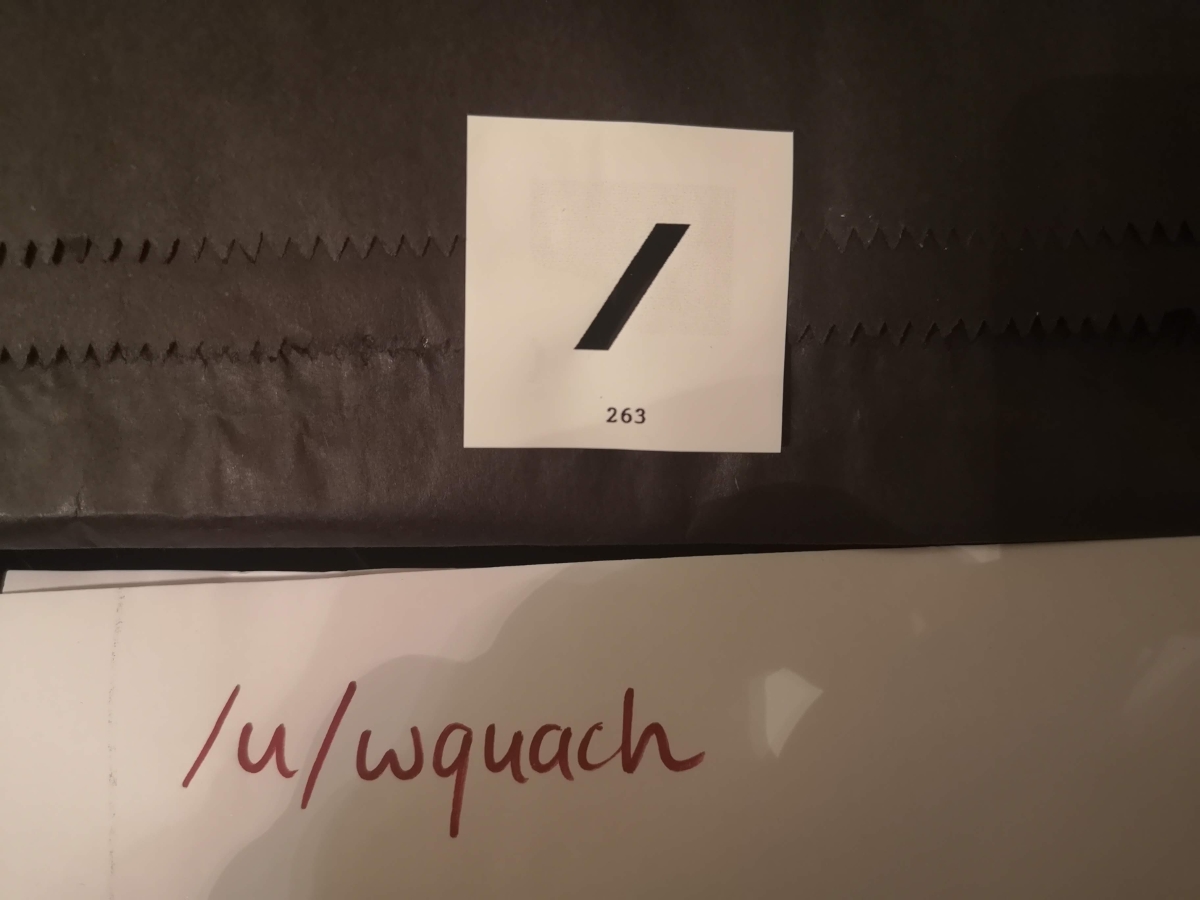 /
263
/u/wquach